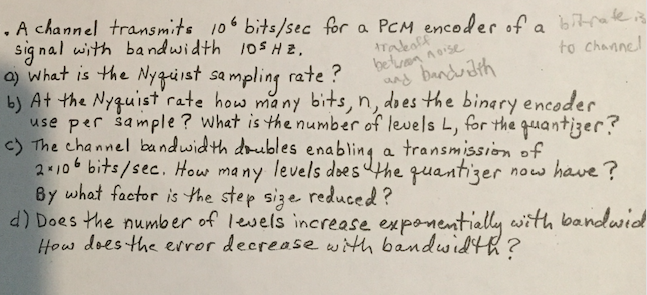 . A channel transmits 10⁶ bits/sec for a PCM encoder of a
signal with bandwidth 10⁵ Hz.
tradeoff
between noise
and bandwidth
to channel
a) What is the Nyquist sampling rate?
b) At the Nyquist rate how many bits, n, does the binary encoder
use per sample? What is the number of levels L, for the quantizer?
c) The channel bandwidth doubles enabling a transmission of
2×10⁶ bits/sec. How many levels does the quantizer now have?
By what factor is the step size reduced?
d) Does the number of levels increase exponentially with bandwid
How does the error decrease with bandwidth?